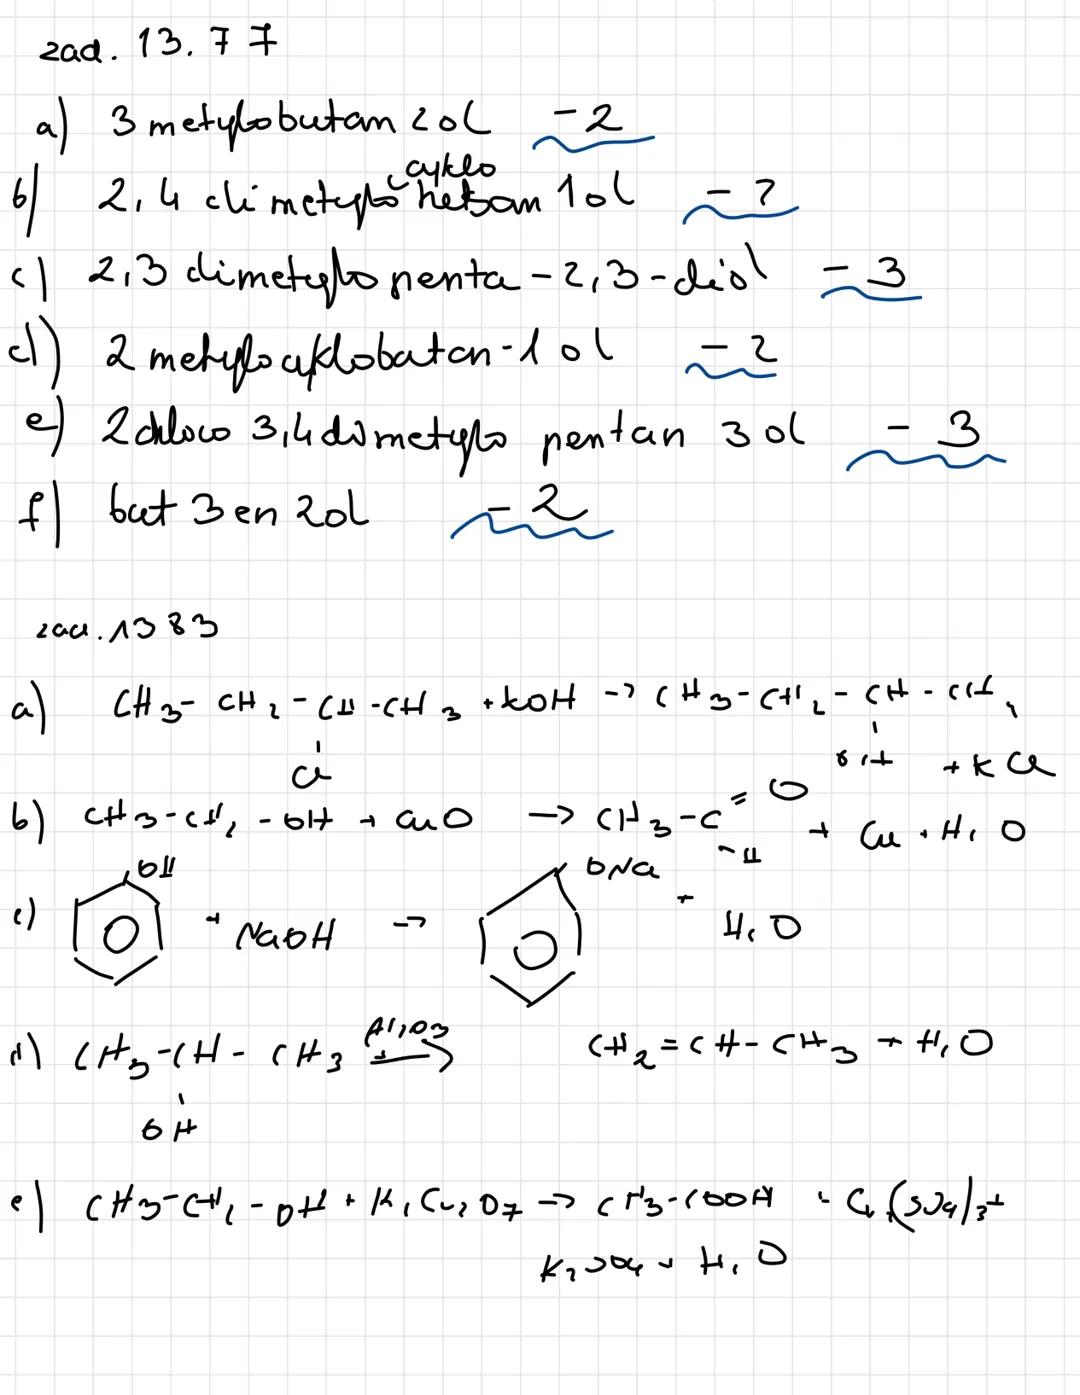 zad. 13.77
a) 3 metylobutan 2ol -2
cyklo
b) 2,4 dimetylo heksan 1ol - 2
c) 2,3 dimetylo penta-2,3-diol - 3
d) 2 metylocyklobutan-1 ol - 2
e) 2chloro 3,4dimetylo pentan 3ol - 3
f) but 3en 2ol - 2
zad. 13 83
a) CH3-CH2-CH-CH3 + KOH -> CH3-CH2-CH-CH3
Cl OH + KCl
b) CH3-CH2-OH + CuO -> CH3-C=O -H + Cu + H2O
OH ONa
c) + NaOH -> + H2O
Al2O3
d) CH3-CH-CH3 -> CH2=CH-CH3 + H2O
OH
e) CH3-CH2-OH + K2Cr2O7 -> CH3-COOH + Cr2(SO4)3+
K2SO4 + H2O